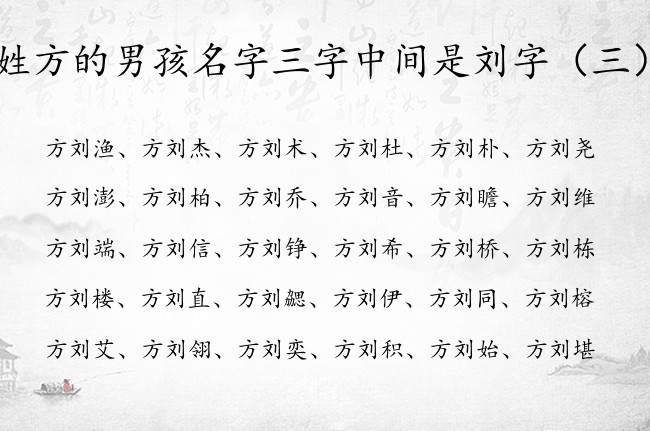 姓方的男孩名字三字中间是刘字（三）
方刘渔、方刘杰、方刘术、方刘杜、方刘朴、方刘尧
方刘澎、方刘柏、方刘乔、方刘音、方刘瞻、方刘维
方刘端、方刘信、方刘铮、方刘希、方刘桥、方刘栋
方刘楼、方刘直、方刘勰、方刘伊、方刘同、方刘榕
方刘艾、方刘翎、方刘奕、方刘积、方刘始、方刘堪